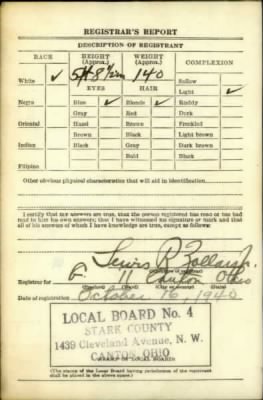 REGISTRAR'S REPORT
DESCRIPTION OF REGISTRANT
RACE HEIGHT (Approx.) WEIGHT (Approx.) COMPLEXION
5 ft 8 1/2 in 140
White ✓ Sallow
EYES HAIR Light ✓
Negro Blue ✓ Blonde ✓ Ruddy
Gray Red Dark
Oriental Hazel Brown Freckled
Brown Black Light brown
Indian Black Gray Dark brown
Bald Black
Filipino
Other obvious physical characteristics that will aid in identification
I certify that my answers are true; that the person registered has read or has had
read to him his own answers; that I have witnessed his signature or mark and that
all of his answers of which I have knowledge are true, except as follows:
Lewis R.
Registrar for Canton Ohio
Date of registration October 16, 1940
LOCAL BOARD No. 4
STARK COUNTY
1439 Cleveland Avenue, N. W.
CANTON, OHIO
(STAMP OF LOCAL BOARD)
(The stamp of the Local Board having jurisdiction of the registrant
shall be placed in the above space.)